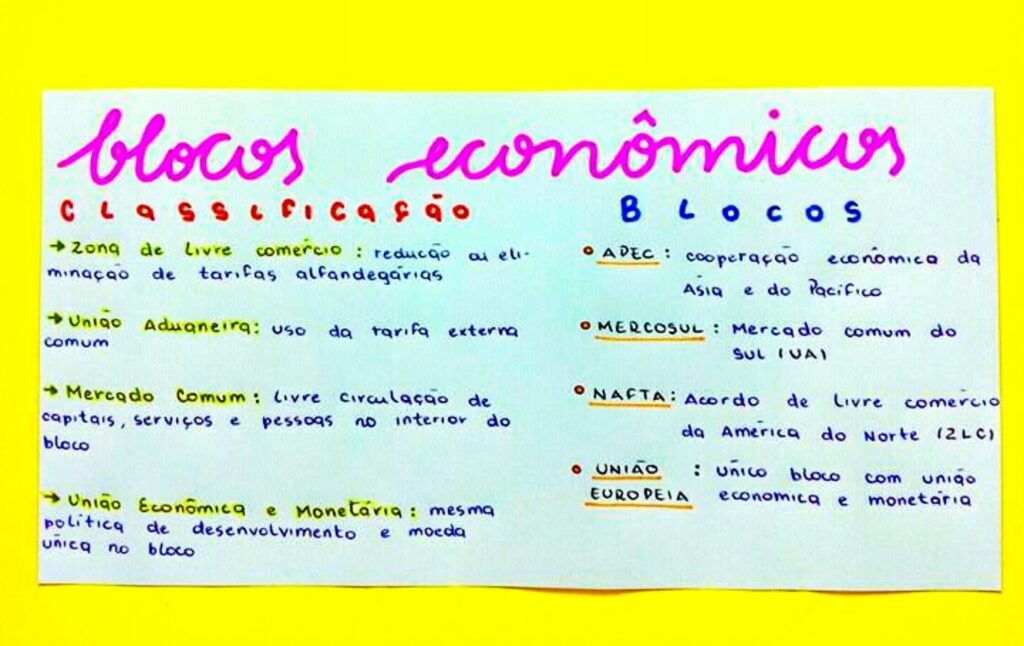 blocos econômicos
CLASSIFICAÇÃO
→ Zona de Livre comércio: redução ou eli-
minação de tarifas alfandegárias
→ União Aduaneira: uso da tarifa externa
comum
→ Mercado Comum: livre circulação de
capitais, serviços e pessoas no interior do
bloco
→ União Econômica e Monetária: mesma
política de desenvolvimento e moeda
única no bloco
BLOCOS
APEC: cooperação econômica da
Ásia e do Pacífico
MERCOSUL: Mercado comum do
SUL (UA)
NAFTA: Acordo de Livre comércio
da América do Norte (ZLC)
UNIÃO : único bloco com união
EUROPEIA economica e monetária